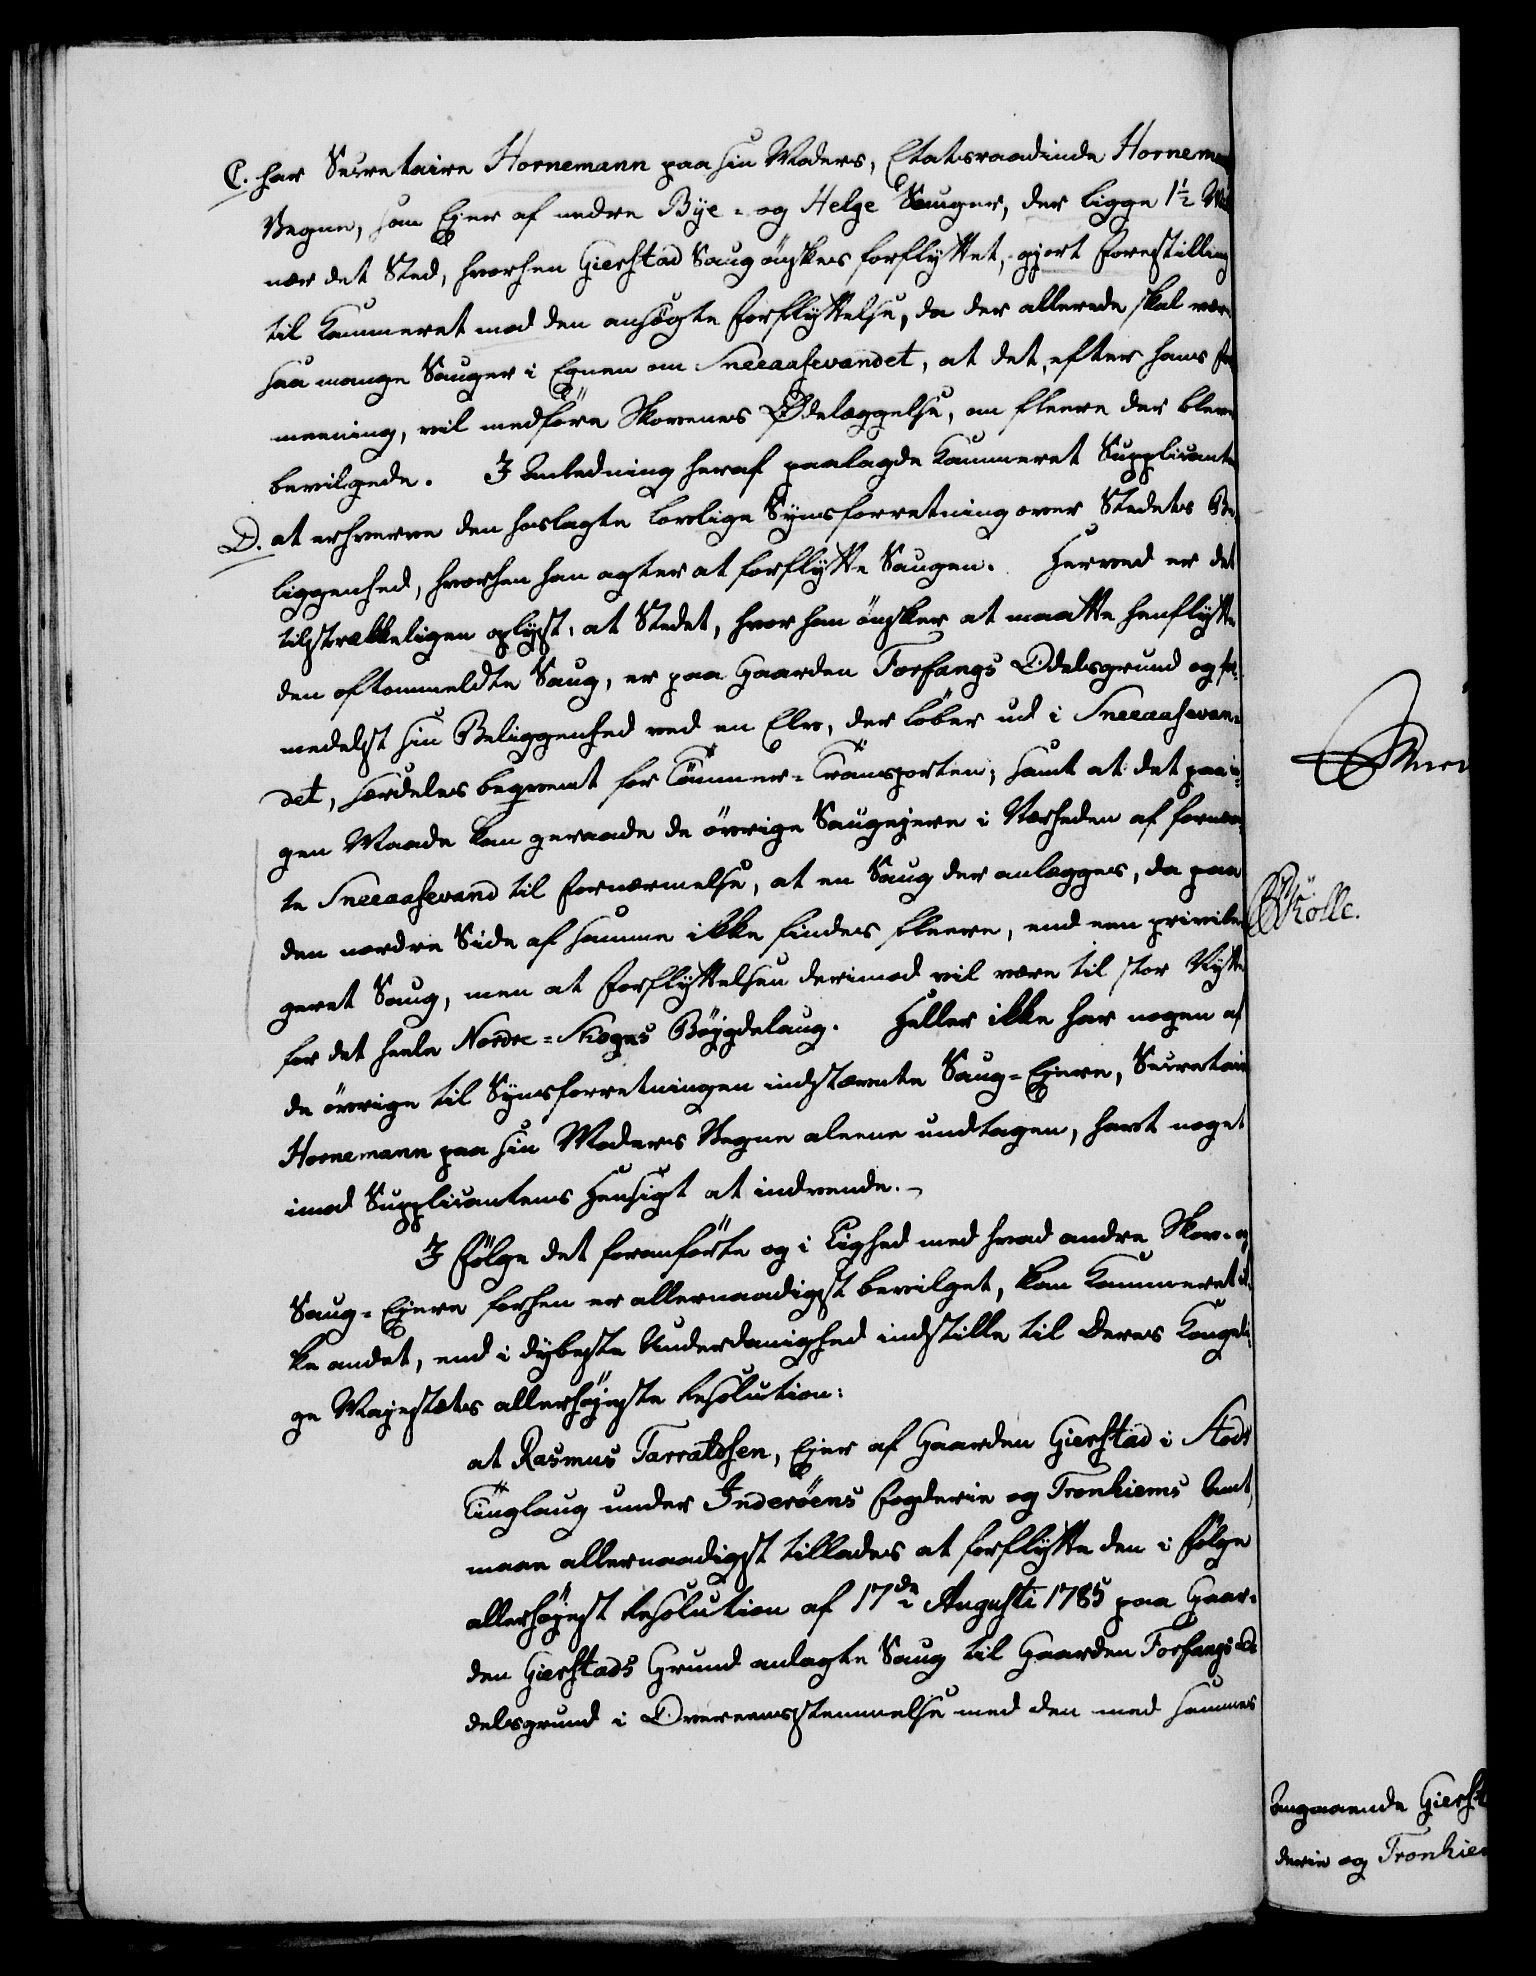 C. har Secretaire Hornemann paa sin Moders, Etatsraadinde Hornemann
Vegne, som Ejer af nedre Bye- og Helge Sauger, der ligge 1½ Miil
nær det Sted, hvorhen Gierstad Saug ønskes forflyttet, gjort Forestilling
til Kammeret mod den ansøgte Forflyttelse, da der allerede skal være
saa mange Sauger i Egnen om Sneeaasevandet, at det, efter hans For-
meening, vil medføre Skovenes Ødelæggelse, om fleere der bleve
bevilgede. I Anledning heraf paalagde Kammeret Supplicanten
D. at erhverve den hoslagte lovlige Synsforretning over Stedets Be-
liggenhed, hvorhen han agter at forflytte Saugen. Herved er det
tilstrækkeligen oplyst, at Stedet, hvor han ønsker at maatte henflytte
den oftommeldte Saug, er paa Gaarden Forfangs Odelsgrund og for-
medelst sin Beliggenhed ved en Elv, der løber ud i Sneeaasevan-
det, særdeles beqvemt for Tømmer-Transporten; samt at det paa in-
gen Maade kan geraade de øvrige Saugejere i Nærheden af fornævn-
te Sneeaasevand til Fornærmelse, at en Saug der anlægges, da paa
den nordre Side af samme ikke findes fleere, end een privile-
geret Saug, men at Forflyttelsen derimod vil være til stor Nytte
for det heele Nordre-Skogns Bøygdelaug. Heller ikke har nogen af
de øvrige til Synsforretningen indstævnte Saug-Ejere, Secretaire
Hornemann paa sin Moders Vegne aleene undtagen, havt noget
imod Supplicantens Hensigt at indvende.
I Følge det foranførte og i Lighed med hvad andre Skov- og
Saug-Ejere forhen er allernaadigst bevilget, kan Kammeret ik-
ke andet, end i dybeste Underdanighed indstille til Deres Kongeli-
ge Majestæts allerhøjeste Resolution:
at Rasmus Tarraldsen, Ejer af Gaarden Gierstad i Stods
Tinglaug under Inderøens Fogderie og Tronhiems Amt,
maae allernaadigst tillades at forflytte den i Følge
allerhøjest Resolution af 17de Augusti 1785 paa Gaar-
den Gierstads Grund anlagte Saug til Gaarden Forfangs O-
delsgrund i Overeensstemmelse med den med sammes
Kölle.
Angaaende Gierst
derie og Tronhie